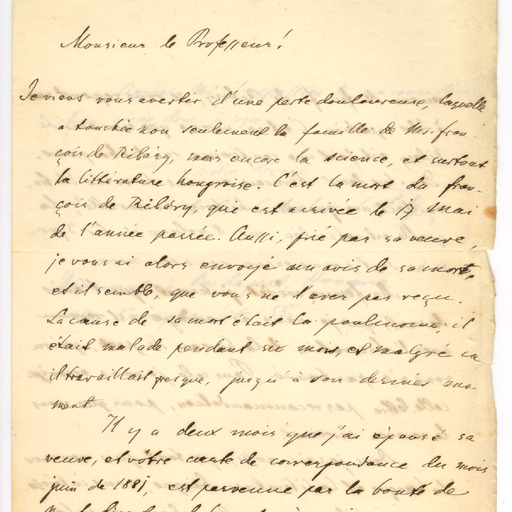 Monsieur le Professeur!
Je viens vous avertir d'une perte douloureuse, laquelle
a touchée non seulement la famille de Mr. fran-
çois de Ribáry, mais encore la science, et surtout
la littérature hongroise. C'est la mort du fran-
çois de Ribáry, que est arrivée le 17 Mai
de l'année passée. Aussi, prié par sa veuve,
je vous ai alors envoyé un avis de sa mort,
et il semble, que vous ne l'avez pas reçu.
La cause de sa mort était la poulmonie, il
était malade pendant six mois, et malgré ca
il travaillait presque, jusqu'à son dernier mo-
ment.
Il y a deux mois que j'ai épousé sa
veuve, et vôtre carte de correspondance du mois
juin de 1881, est parvenue par la bonté de